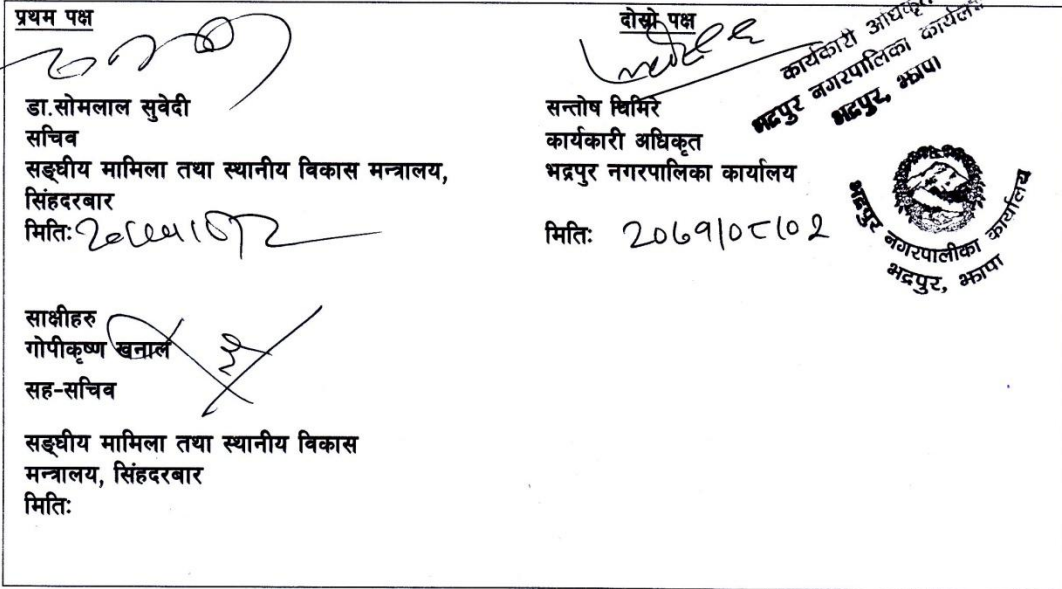 प्रथम पक्ष
डा.सोमलाल सुवेदी
सचिव
सङ्घीय मामिला तथा स्थानीय विकास मन्त्रालय,
सिंहदरबार
मितिः
साक्षीहरु
गोपीकृष्ण खनाल
सह-सचिव
सङ्घीय मामिला तथा स्थानीय विकास
मन्त्रालय, सिंहदरबार
मितिः
दोस्रो पक्ष
सन्तोष घिमिरे
कार्यकारी अधिकृत
भद्रपुर नगरपालिका कार्यालय
मितिः
कार्यकारी अधिकृत
भद्रपुर नगरपालिका कार्यालय
भद्रपुर, झापा
भद्रपुर नगरपालीका कार्यालय
भद्रपुर, झापा